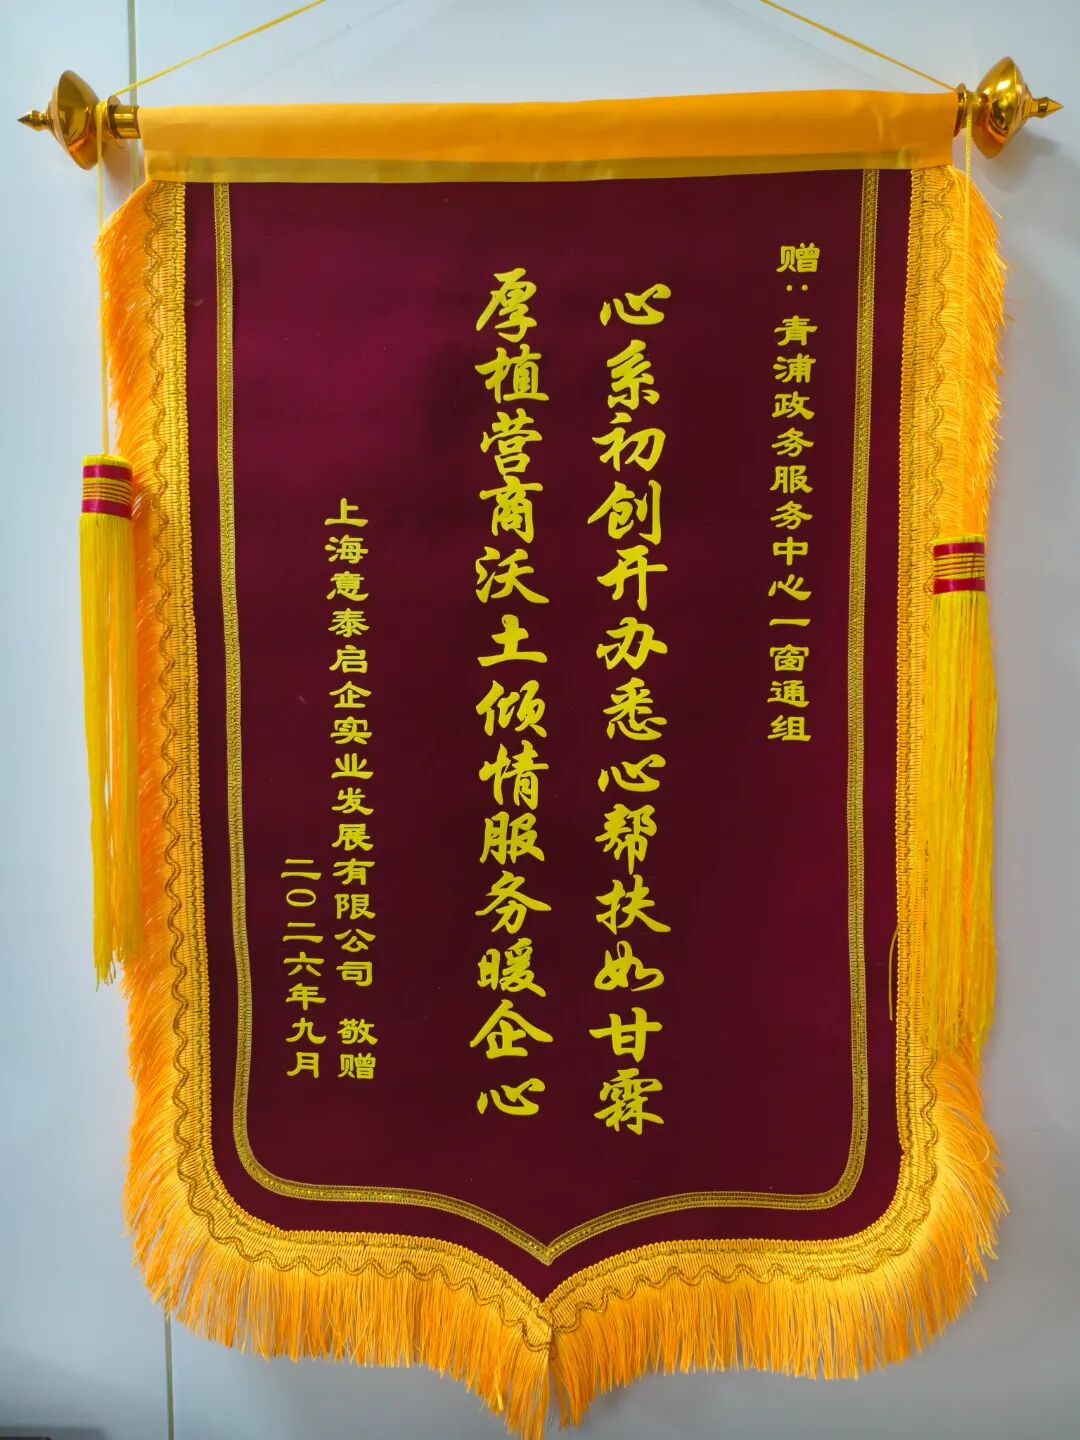 赠：青浦政务服务中心一窗通组
心系初创开办悉心帮扶如甘霖
厚植营商沃土倾情服务暖企心
上海意泰启企实业发展有限公司 敬赠
二〇二六年九月